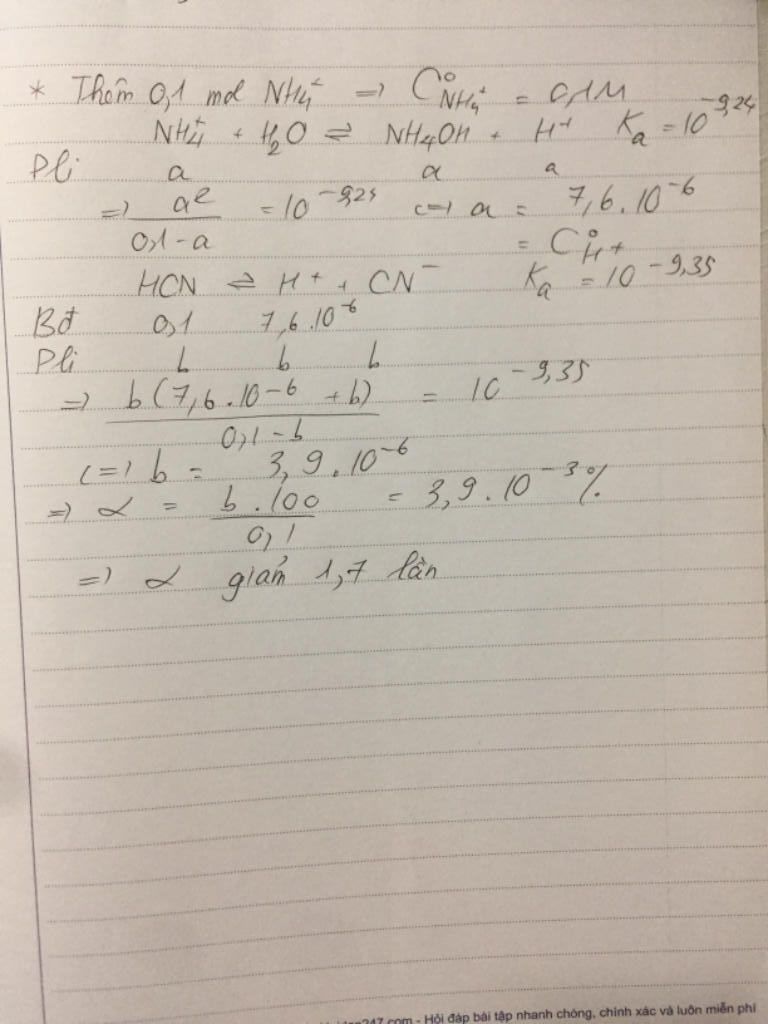 * Thêm 0,1 mol NH₄⁺ => C°NH₄⁺ = 0,1M
NH₄⁺ + H₂O ⇌ NH₄OH + H⁺ Kₐ = 10^-9,24
Pli a a a
=> a²/(0,1-a) = 10^-9,24 <=> a = 7,6.10^-6
= C°H⁺
HCN ⇌ H⁺ + CN⁻ Kₐ = 10^-9,35
Bđ 0,1 7,6.10^-6
Pli b b b
=> b(7,6.10^-6 + b)/(0,1-b) = 10^-9,35
<=> b = 3,9.10^-6
=> α = b.100/0,1 = 3,9.10^-3%
=> α giảm 1,7 lần
247.com - Hỏi đáp bài tập nhanh chóng, chính xác và luôn miễn phí